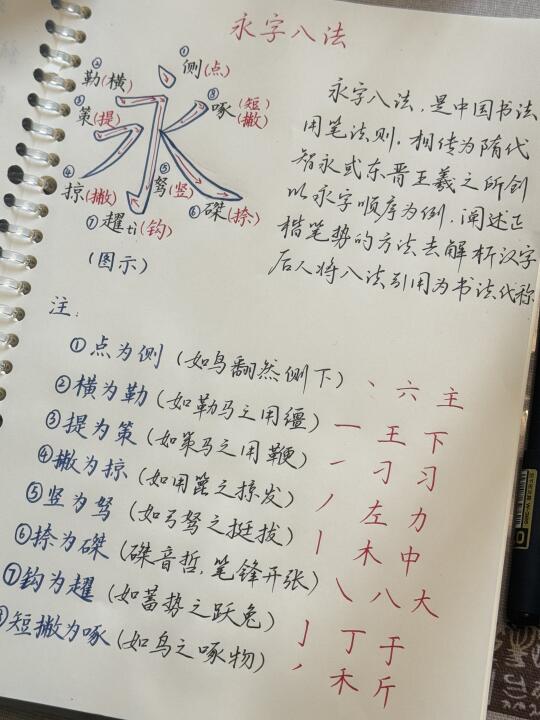 永字八法
①
侧(点)
②
勒(横)
③
策(提)
⑧
啄(短撇)
④
掠(撇)
⑤
弩(竖)
⑥磔(捺)
⑦趯tì(钩)
(图示)
永字八法,是中国书法
用笔法则.相传为隋代
智永或东晋王羲之所创
以永字顺序为例,阐述正
楷笔势的方法去解析汉字
后人将八法引用为书法代称
注:
①点为侧(如鸟翻然侧下)、六 主
②横为勒(如勒马之用缰)一 王 下
③提为策(如策马之用鞭)㇀ 刁 习
④撇为掠(如用篦之掠发)丿 左 力
⑤竖为弩(如弓弩之挺拔)丨 木 中
⑥捺为磔(磔音哲,笔锋开张)㇏ 八 大
⑦钩为趯(如蓄势之跃兔)亅 丁 于
⑧短撇为啄(如鸟之啄物)㇒ 禾 斤